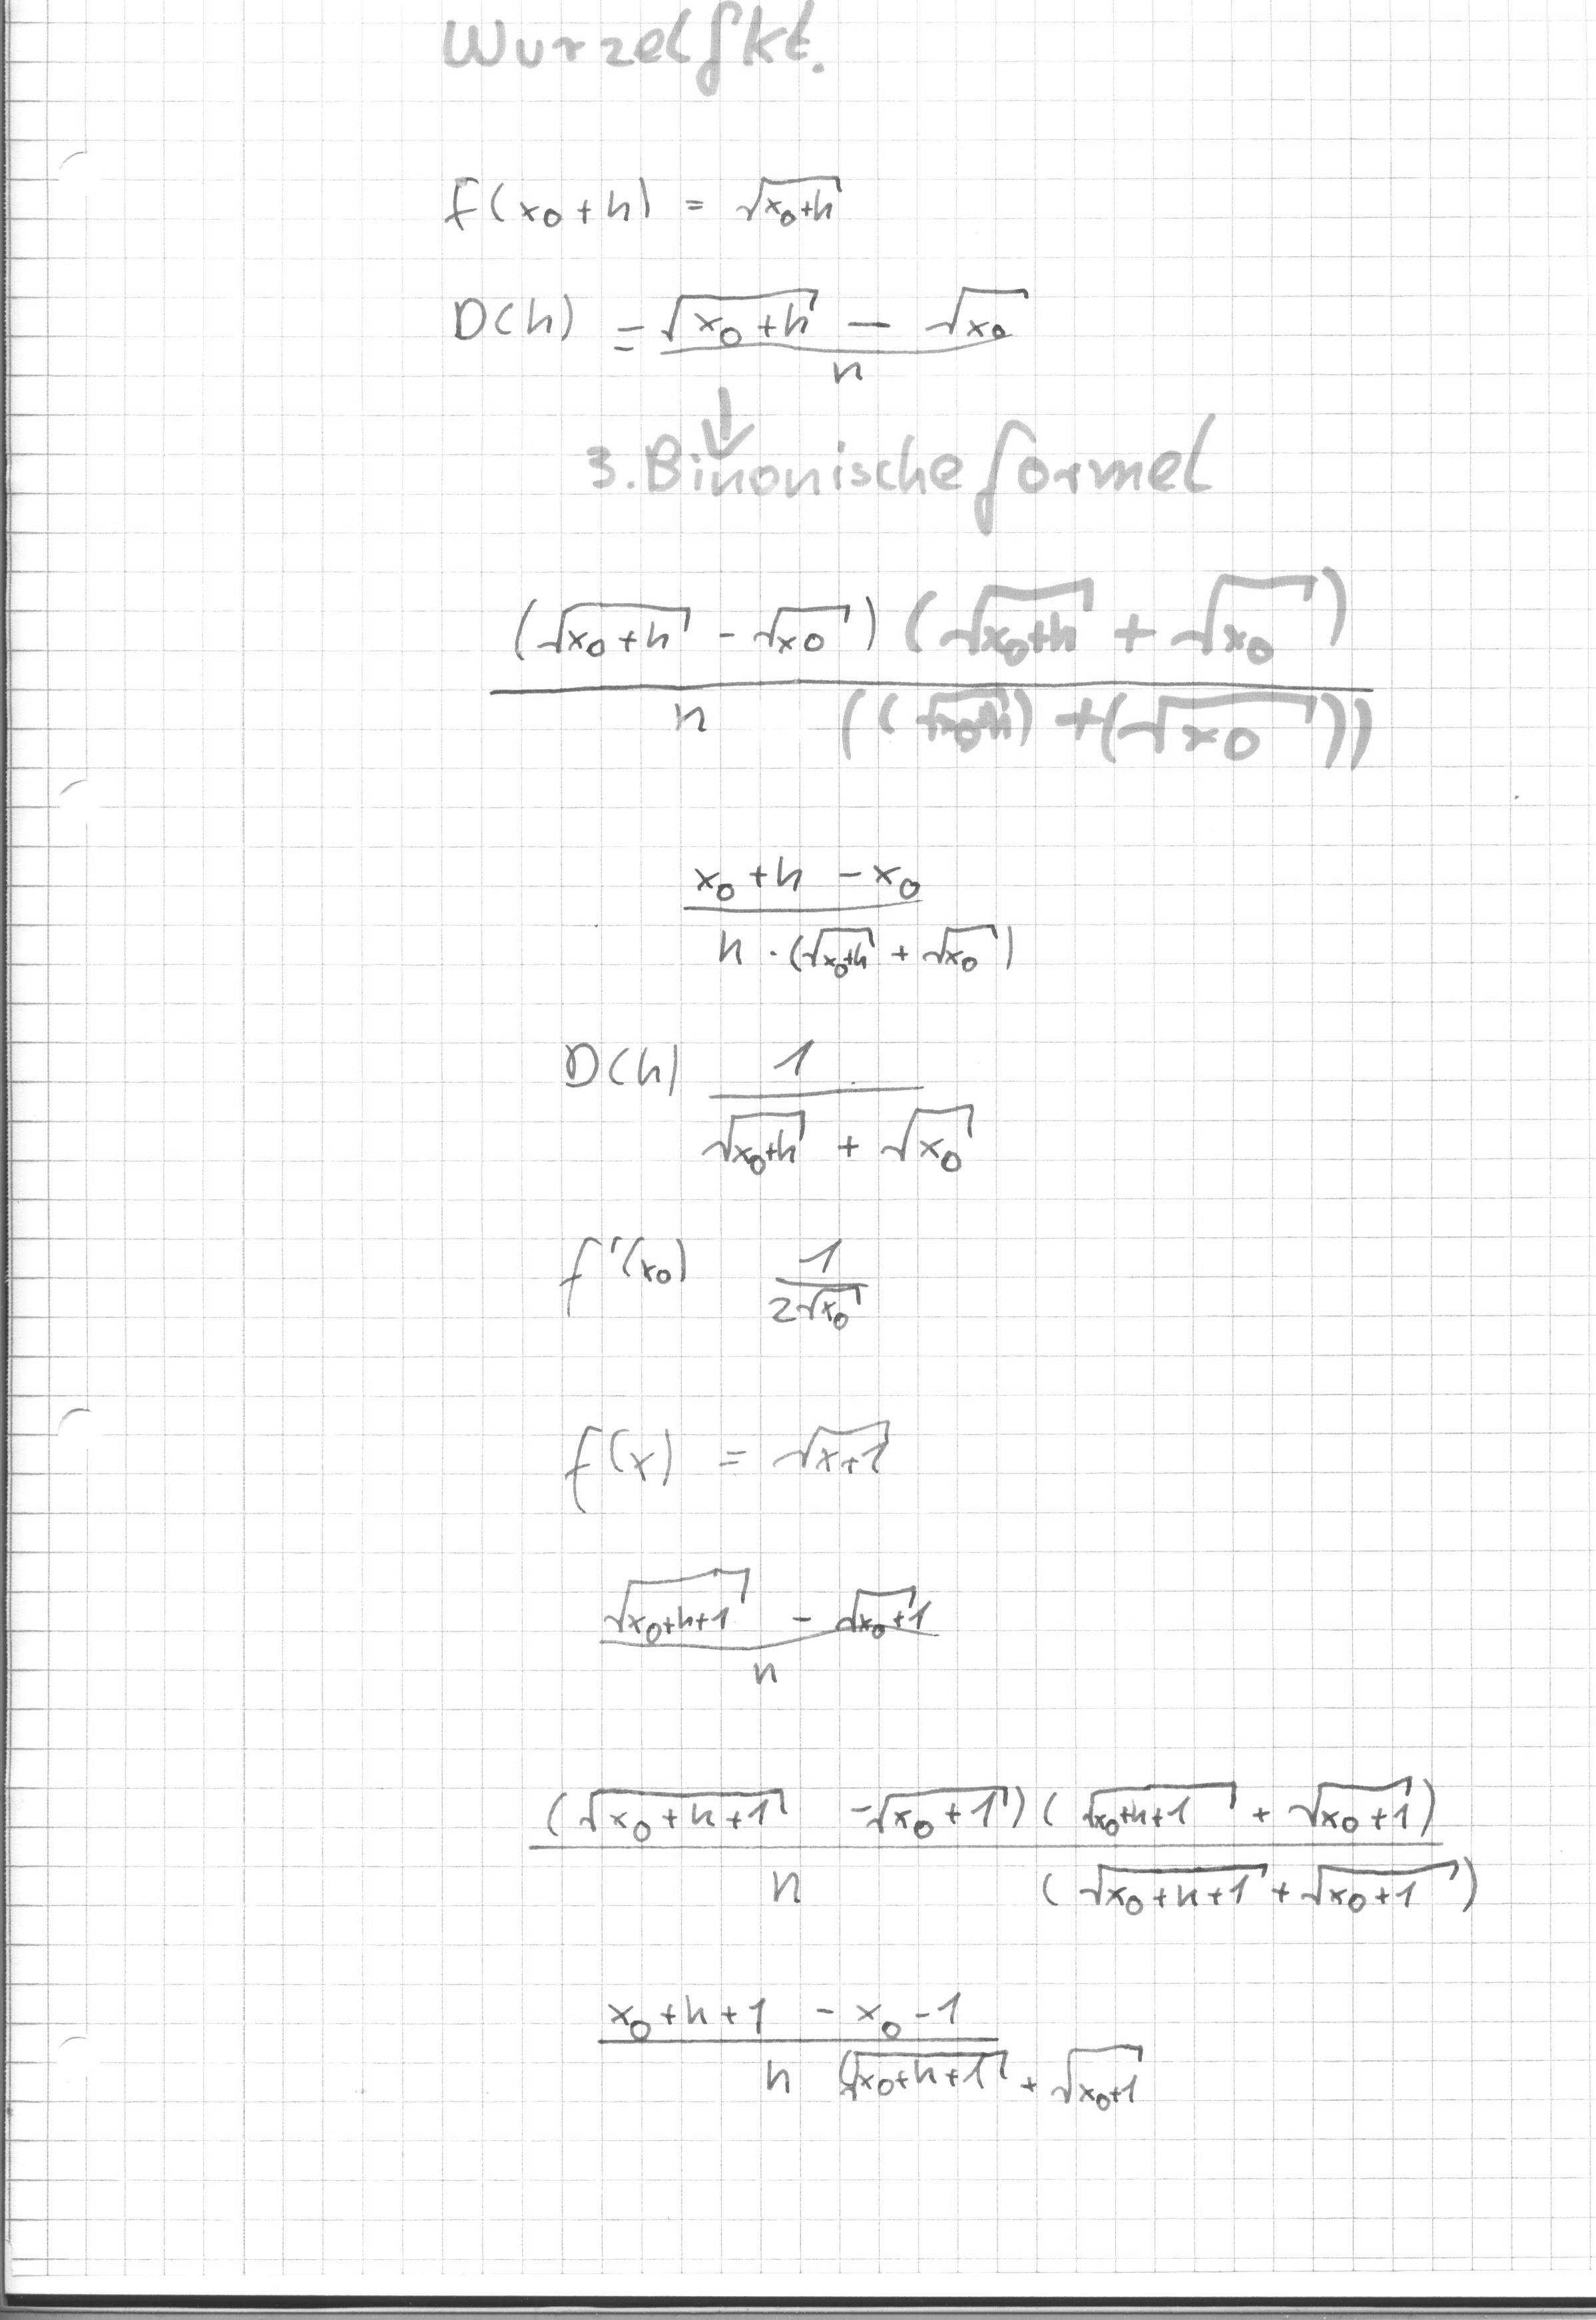 Wurzelfkt.
f(x₀+h) = √(x₀+h)
D(h) = (√(x₀+h) − √x₀) / h
↓
3. Binonische formel
((√(x₀+h) - √x₀) (√(x₀+h) + √x₀)) / (h ((√(x₀+h)) + (√x₀)))
(x₀+h - x₀) / (h · (√(x₀+h) + √x₀))
D(h) 1 / (√(x₀+h) + √x₀)
f'(x₀) 1 / (2√x₀)
f(x) = √(x+1)
(√(x₀+h+1) - √(x₀+1)) / h
((√(x₀+h+1) - √(x₀+1)) (√(x₀+h+1) + √(x₀+1))) / (h (√(x₀+h+1) + √(x₀+1)))
(x₀+h+1 - x₀-1) / (h (√(x₀+h+1) + √(x₀+1)